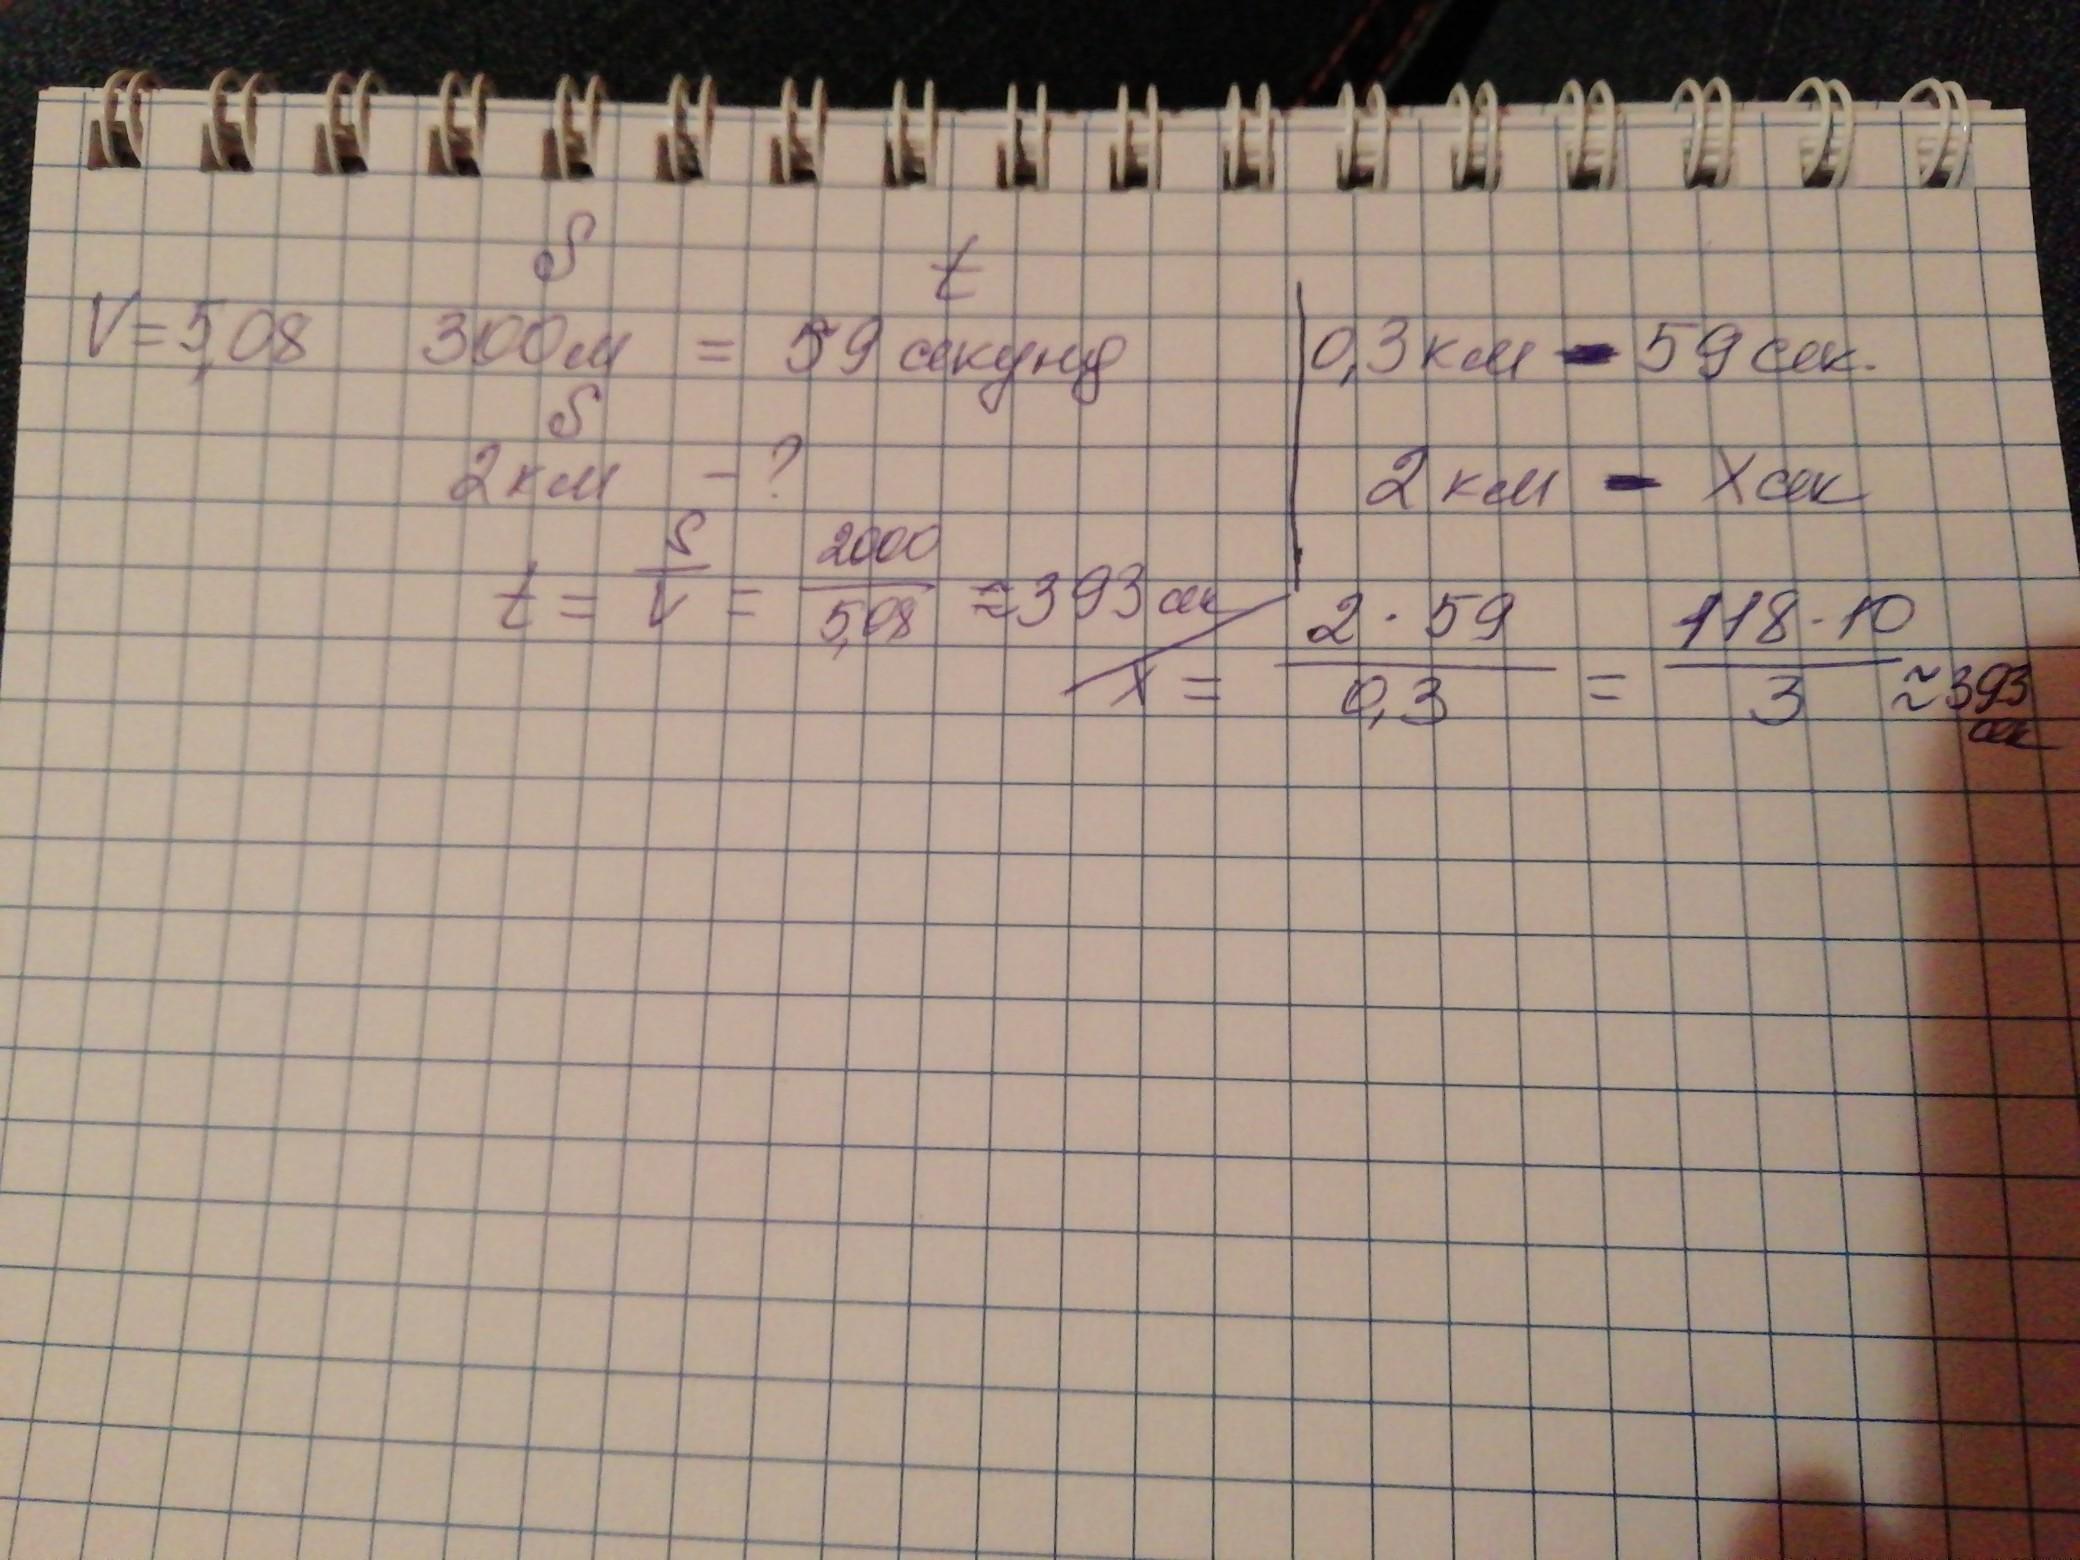 S t
V = 5,08 300м = 59 секунд
S
2км - ?
t = S/V = 2000/5,08 ≈ 393 сек
0,3 км - 59 сек.
2 км - X сек
X = 2 · 59/0,3 = 118 · 10/3 ≈ 393 сек